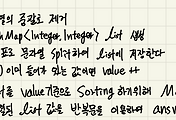 열의 중괄호 제거
hMap<Integer, Integer> list 생성
표로 문자열 split하여 list에 저장한다
미 들어 있는 값이면 value ++
를 value기준으로 Sorting하기위해 M
list 값을 반복문을 이용하여 answ